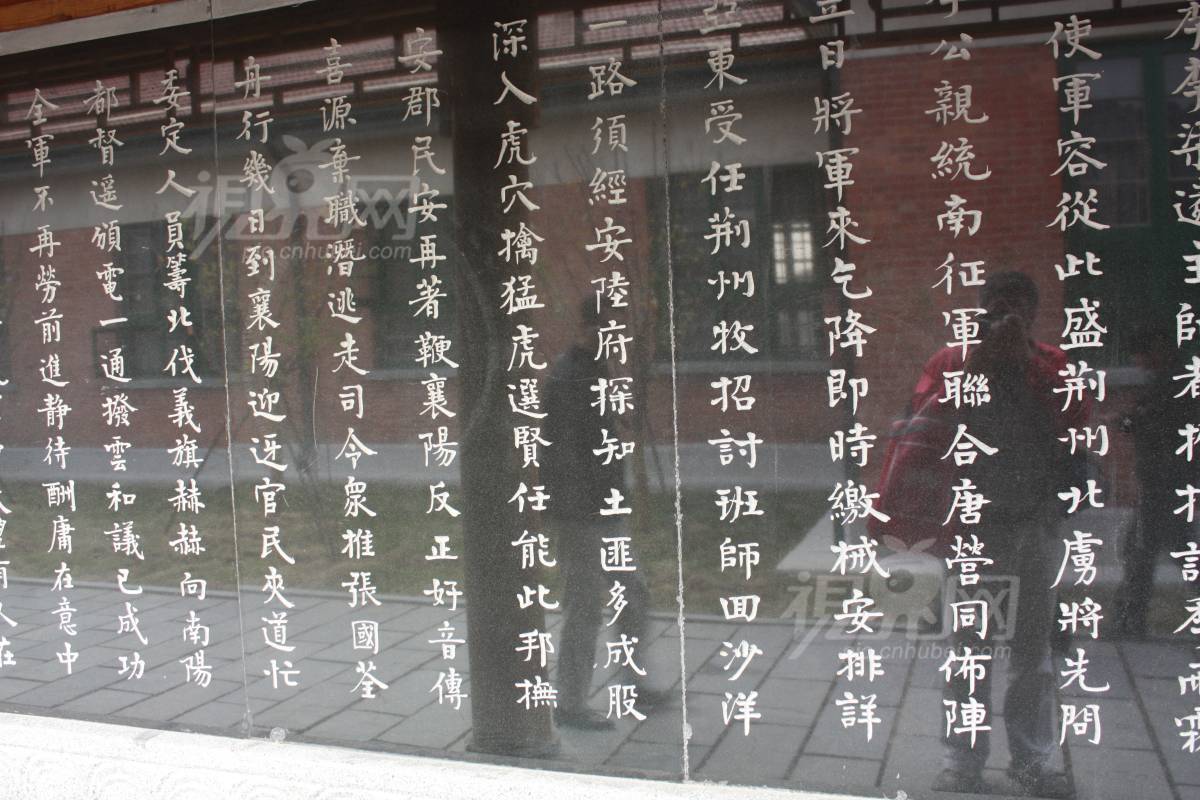 主師者
使軍容從此盛荊州北虜將先問
公親統南征軍聯合唐營同佈陣
日將軍來乞降即時繳械安排詳
亞東受任荊州牧招討班師囬沙洋
一路須經安陸府探知土匪多成股
深入虎穴擒猛虎選賢任能此邦撫
安郡民安再著鞭襄陽反正好音傳
喜源棄職潛逃走司令眾推張國荃
舟行幾日到襄陽迎迓官民夾道忙
委定人員籌北伐義旗赫赫向南陽
都督遥頒電一通撥雲和議已成功
全軍不再勞前進静待酬庸在意中
视界网
cnhubei.com
视界网
cnhubei.com